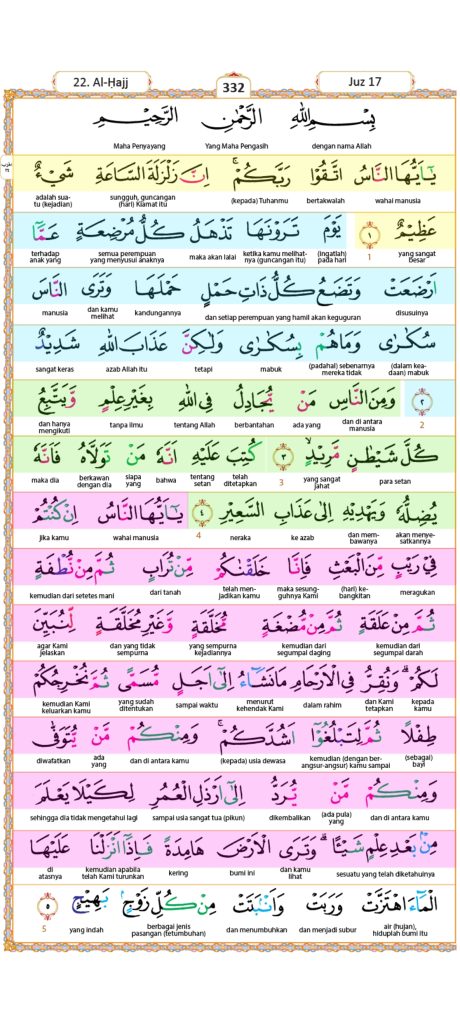 22. Al-Ḥajj
332
Juz 17
بِسْمِ اللّٰهِ الرَّحْمٰنِ الرَّحِيْمِ
dengan nama Allah Yang Maha Pengasih Maha Penyayang
يٰٓاَيُّهَا النَّاسُ اتَّقُوْا رَبَّكُمْۚ اِنَّ زَلْزَلَةَ السَّاعَةِ شَيْءٌ
wahai manusia bertakwalah (kepada) Tuhanmu sungguh, guncangan (hari) Kiamat itu adalah suatu (kejadian)
عَظِيْمٌ ١ يَوْمَ تَرَوْنَهَا تَذْهَلُ كُلُّ مُرْضِعَةٍ عَمَّآ
yang sangat besar 1 (Ingatlah) pada hari ketika kamu melihatnya (guncangan itu) maka akan lalai semua perempuan yang menyusui anaknya terhadap anak yang
اَرْضَعَتْ وَتَضَعُ كُلُّ ذَاتِ حَمْلٍ حَمْلَهَا وَتَرَى النَّاسَ
disusuinya dan setiap perempuan yang hamil akan keguguran kandungannya dan kamu melihat manusia
سُكٰرٰى وَمَا هُمْ بِسُكٰرٰى وَلٰكِنَّ عَذَابَ اللّٰهِ شَدِيْدٌ
(dalam keadaan) mabuk (padahal) sebenarnya mereka tidak mabuk tetapi azab Allah itu sangat keras
٢ وَمِنَ النَّاسِ مَنْ يُّجَادِلُ فِى اللّٰهِ بِغَيْرِ عِلْمٍ وَّيَتَّبِعُ
2 dan di antara manusia ada yang berbantahan tentang Allah tanpa ilmu dan hanya mengikuti
كُلَّ شَيْطٰنٍ مَّرِيْدٍۙ ٣ كُتِبَ عَلَيْهِ اَنَّهٗ مَنْ تَوَلَّاهُ فَاَنَّهٗ
para setan yang sangat jahat 3 telah ditetapkan tentang setan bahwa siapa yang berkawan dengan dia maka dia
يُضِلُّهٗ وَيَهْدِيْهِ اِلٰى عَذَابِ السَّعِيْرِ ٤ يٰٓاَيُّهَا النَّاسُ اِنْ كُنْتُمْ
akan menyesatkannya dan membawanya ke azab neraka 4 wahai manusia Jika kamu
فِيْ رَيْبٍ مِّنَ الْبَعْثِ فَاِنَّا خَلَقْنٰكُمْ مِّنْ تُرَابٍ ثُمَّ مِنْ نُّطْفَةٍ
meragukan (hari) kebangkitan maka sesungguhnya Kami telah menjadikan kamu dari tanah kemudian dari setetes mani
ثُمَّ مِنْ عَلَقَةٍ ثُمَّ مِنْ مُّضْغَةٍ مُّخَلَّقَةٍ وَّغَيْرِ مُخَلَّقَةٍ لِّنُبَيِّنَ
kemudian dari segumpal darah kemudian dari segumpal daging yang sempurna kejadiannya dan yang tidak sempurna agar Kami jelaskan
لَكُمْۗ وَنُقِرُّ فِى الْاَرْحَامِ مَا نَشَاۤءُ اِلٰٓى اَجَلٍ مُّسَمًّى ثُمَّ نُخْرِجُكُمْ
kepada kamu dan Kami tetapkan dalam rahim menurut kehendak Kami sampai waktu yang sudah ditentukan kemudian Kami keluarkan kamu
طِفْلًا ثُمَّ لِتَبْلُغُوْٓا اَشُدَّكُمْۚ وَمِنْكُمْ مَّنْ يُّتَوَفّٰى
(sebagai) bayi kemudian (dengan berangsur-angsur) kamu sampai (kepada) usia dewasa dan di antara kamu ada yang diwafatkan
وَمِنْكُمْ مَّنْ يُّرَدُّ اِلٰٓى اَرْذَلِ الْعُمُرِ لِكَيْلَا يَعْلَمَ
dan di antara kamu (ada pula) yang dikembalikan sampai usia sangat tua (pikun) sehingga dia tidak mengetahui lagi
مِنْۢ بَعْدِ عِلْمٍ شَيْـًٔاۗ وَتَرَى الْاَرْضَ هَامِدَةً فَاِذَآ اَنْزَلْنَا عَلَيْهَا
sesuatu yang telah diketahuinya dan kamu lihat bumi ini kering kemudian apabila telah Kami turunkan di atasnya
الْمَاۤءَ اهْتَزَّتْ وَرَبَتْ وَاَنْۢبَتَتْ مِنْ كُلِّ زَوْجٍۢ بَهِيْجٍ ٥
air (hujan), hiduplah bumi itu dan menjadi subur dan menumbuhkan berbagai jenis pasangan (tetumbuhan) yang indah 5